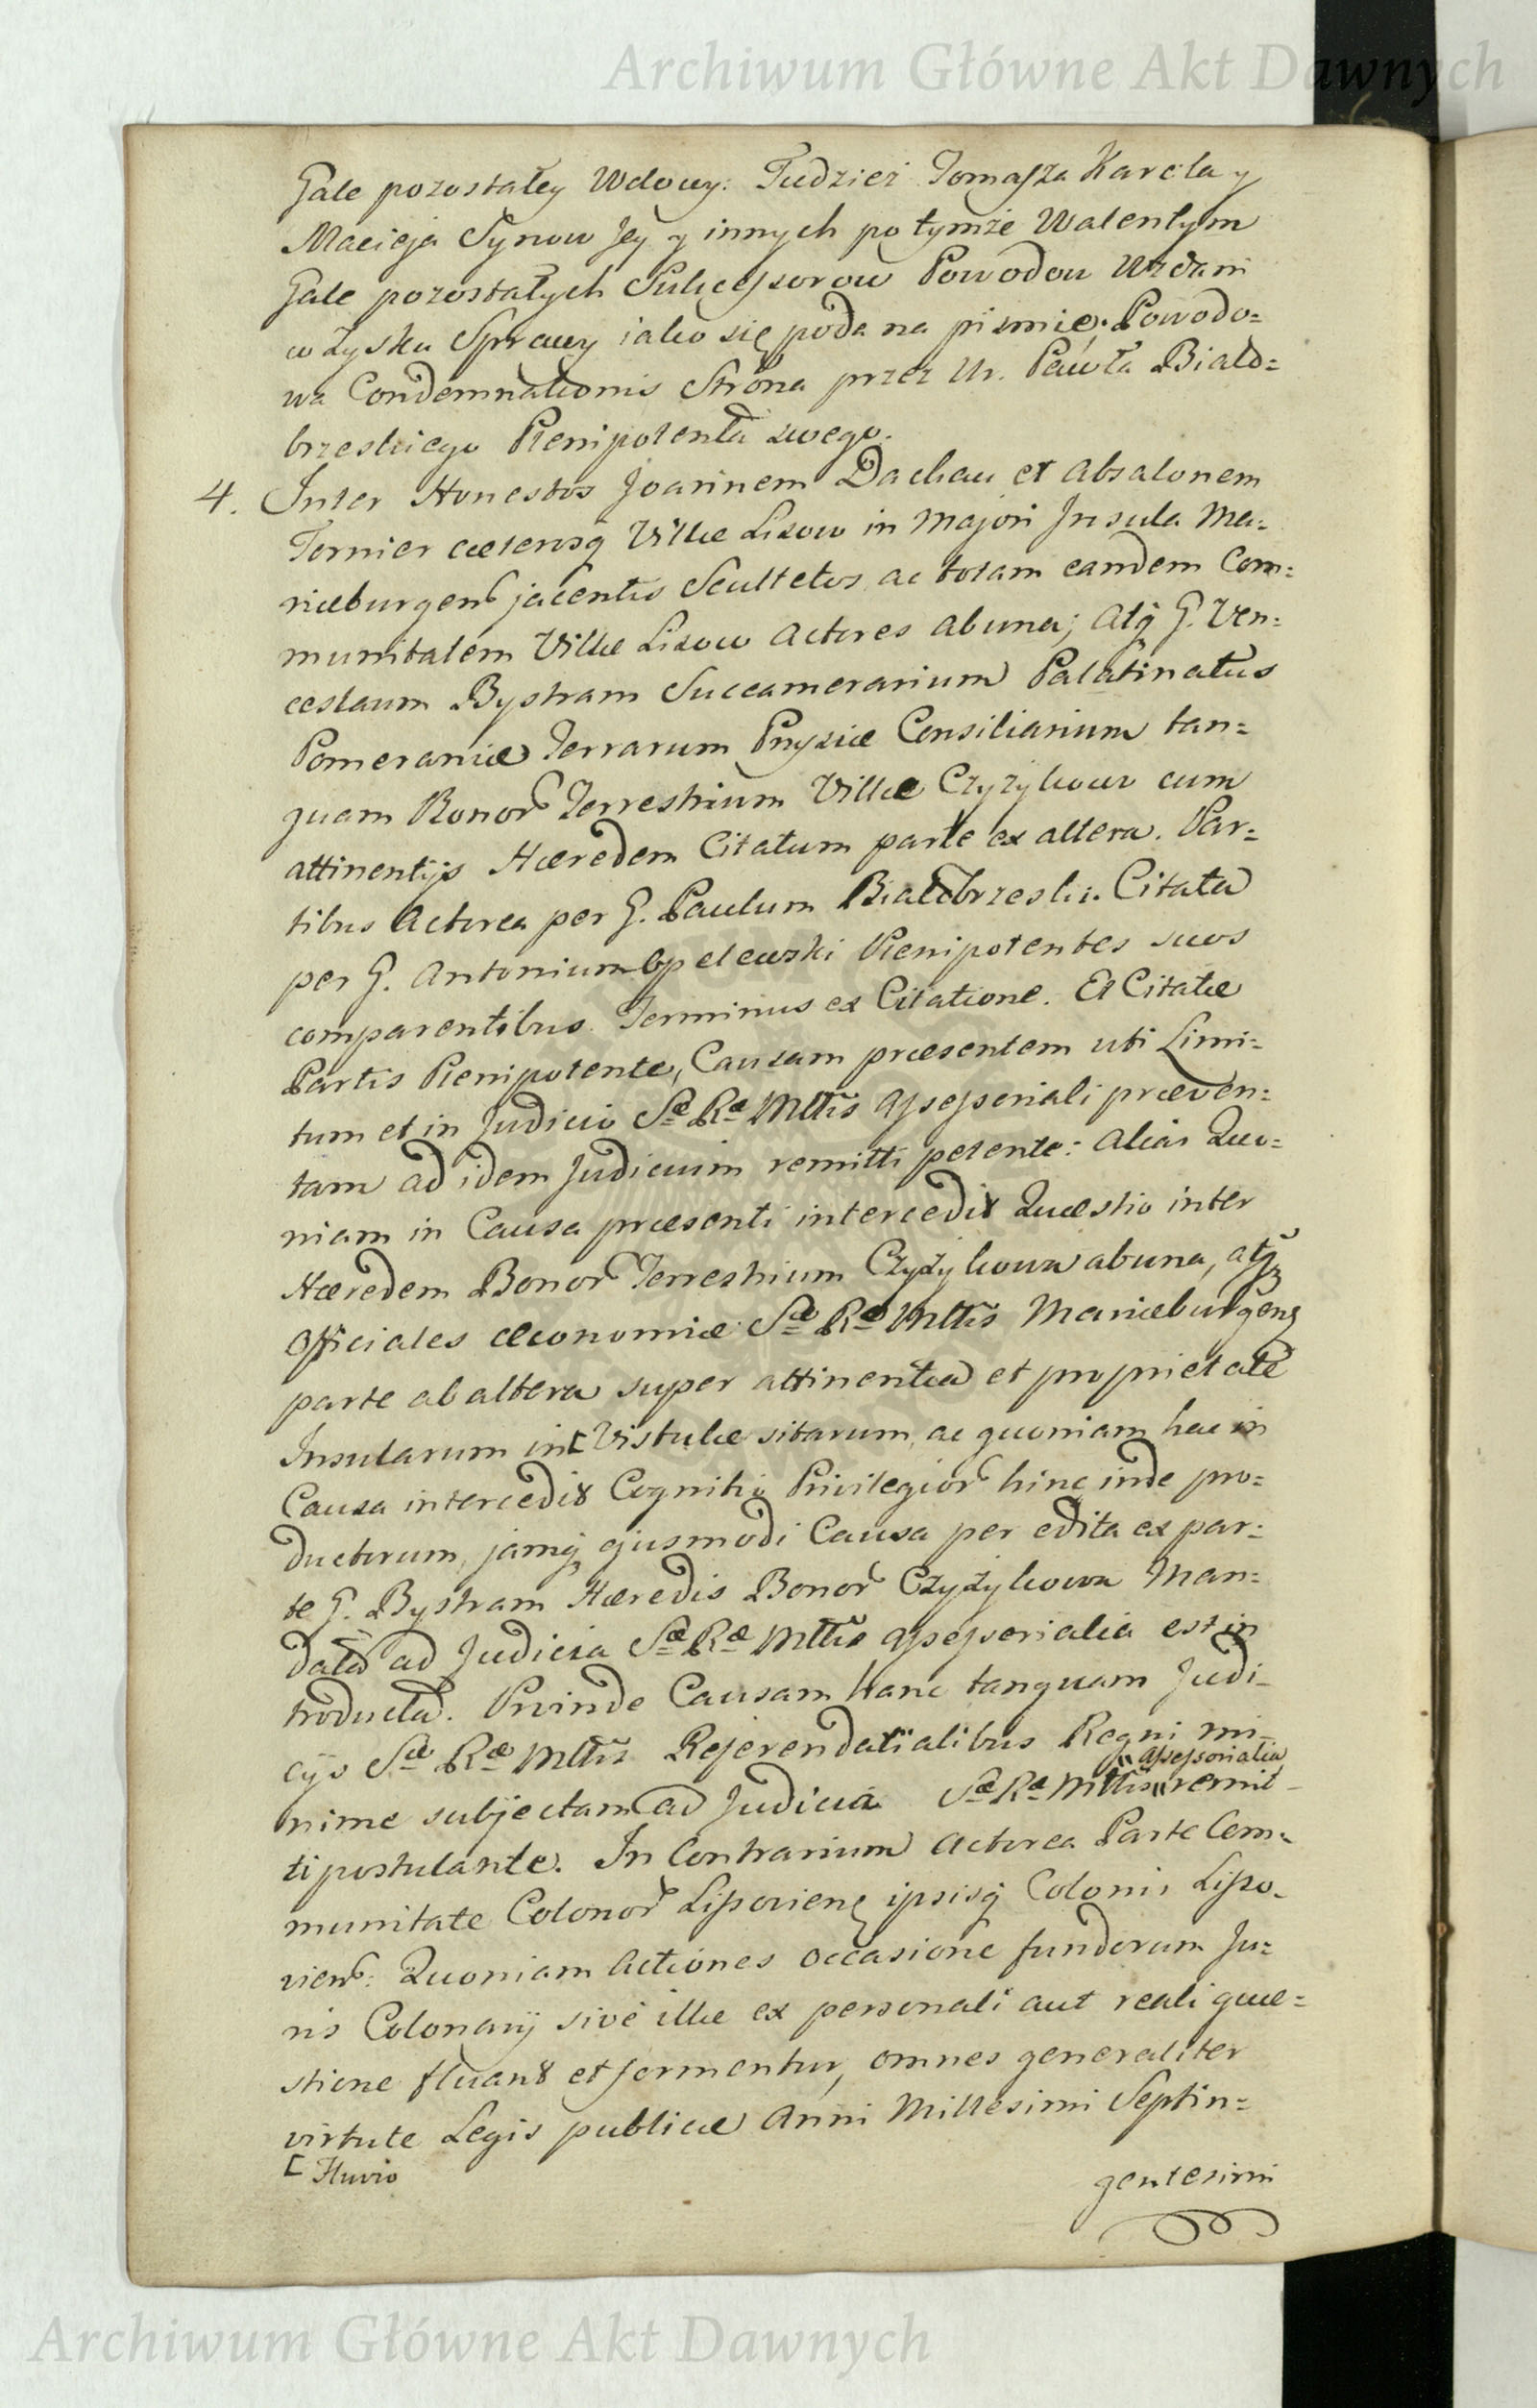 Archiwum Główne Akt Dawnych
Gale pozostałey Wdowy. Tudzież Tomasza Karola y
Macieja Synow Jey y innych po tymże Walentym
Gale pozostałych Sukcessorow Powodow Wzdani
w Zysku Sprawy iako się poda na pismie. Powodo=
wa Condemnationis Strona przez Ur. Pawła Biało=
brzeskiego Plenipotenta swego.
4. Inter Honestos Joannem Dachau et Absalonem
Tornier cæterosq Villæ Lisow in Majori Insula Ma=
riæburgens jacentis Scultetos ac totam eandem Com=
munitatem Villæ Lisow Actores ab una; Atq G. Ven=
ceslaum Bystram Succamerarium Palatinatus
Pomeraniæ Terrarum Prusiæ Consiliarium tan=
quam Bonor Terrestrium Villæ Czyżykow cum
attinentijs Hæredem Citatum parte ex altera. Par=
tibus Actorea per G. Paulum Białobrzeski. Citata
per G. Antonium Opelewski Plenipotentes suos
comparentibus. Terminus ex Citatione. Et Citatæ
Partis Plenipotente, Causam præsentem uti Limi=
tum et in Judicio Sæ Ræ Mttis Assessoriali præven=
tam ad idem Judicium remitti petente: Alias Quo=
niam in Causa præsenti intercedit Quæstio inter
Hæredem Bonor Terrestrium Czyżykowa ab una, atq
Officiales æconomiæ Sæ Ræ Mttis Mariæburgens
parte ab altera super attinentia et proprietate
Insularum in [ Vistulæ sitarum, ac quoniam hac in
Causa intercedit Cognitio Privilegior hinc inde pro=
ductorum, jamq ejusmodi Causa per edita ex par=
te G. Bystram Hæredis Bonor Czyżykowa Man=
data ad Judicia Sæ Ræ Mttis Assessorialia est in
troducta. Proinde Causam hanc tanquam Judi=
cijs Sæ Ræ Mttis Referendarialibus Regni mi=
nime subjectam ad Judicia Sæ Ræ Mttis " assessorialia " remit=
ti postulante. In Contrarium Actorea Parte Com=
munitate Colonor Lissoviens ipsisq Colonis Lisso=
viens: Quoniam Actiones occasione fundorum Ju=
ris Colonarij sive illæ ex personali aut reali quæ=
stione fluant et formentur, omnes generaliter
virtute Legis publicæ Anni Millesimi Septin=
[ Fluvio
gentesimi
Archiwum Główne Akt Dawnych